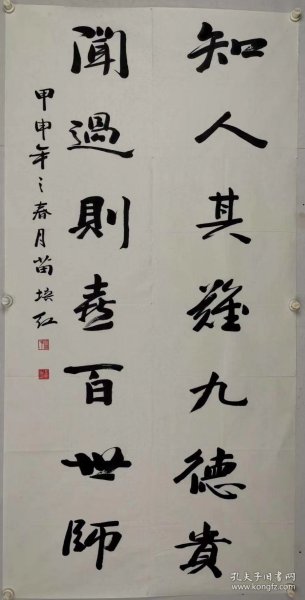 知人其難九德貴
聞過則喜百世師
甲申年之春月苗培红
孔夫子旧书网